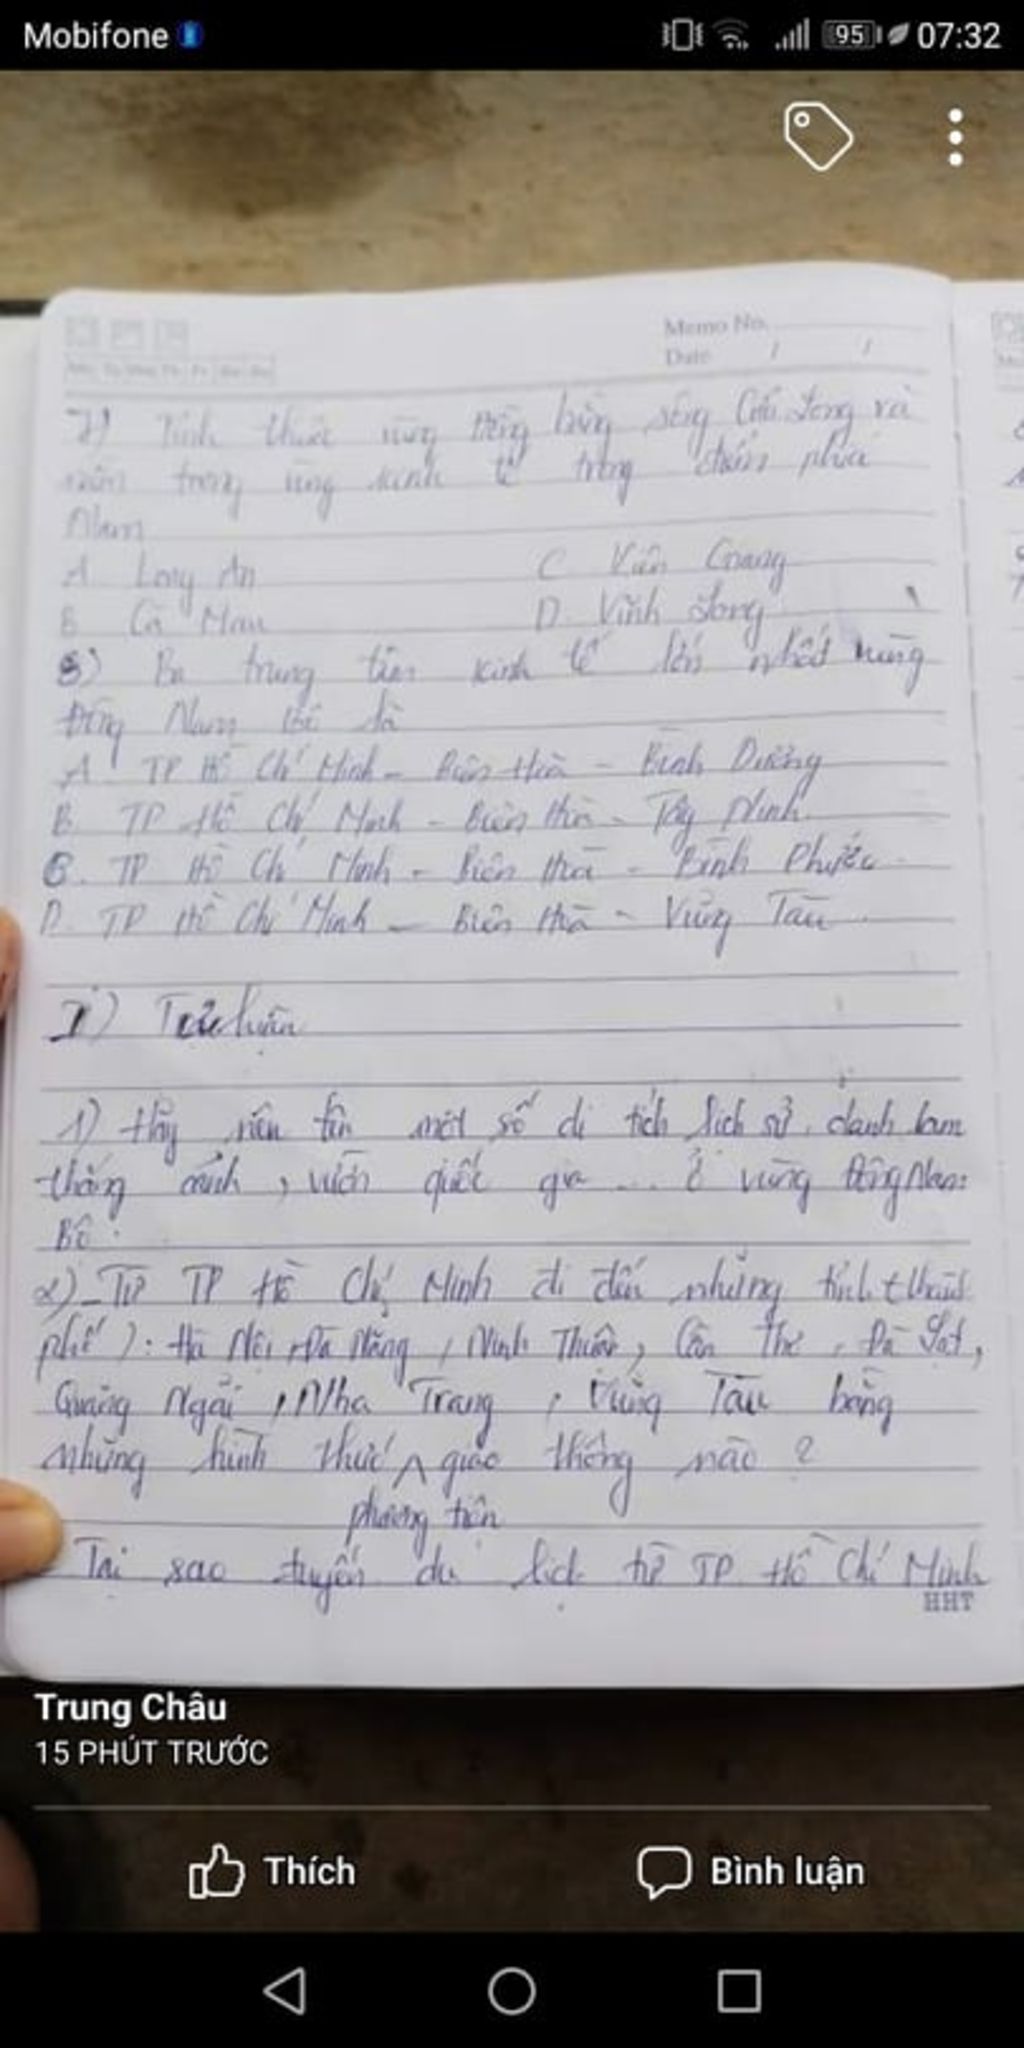 Mobifone
95 07:32
Memo No.
Date / /
7) Tỉnh thuộc vùng đồng bằng sông Cửu Long và
nằm trong vùng kinh tế trọng điểm phía
Nam
A. Long An C. Kiên Giang
B. Cà Mau D. Vĩnh Long
8) Ba trung tâm kinh tế lớn nhất vùng
Đông Nam Bộ là
A. TP Hồ Chí Minh - Biên Hoà - Bình Dương
B. TP Hồ Chí Minh - Biên Hoà - Tây Ninh
C. TP Hồ Chí Minh - Biên Hoà - Bình Phước
D. TP Hồ Chí Minh - Biên Hoà - Vũng Tàu
luận
1) Hãy nêu tên một số di tích lịch sử, danh lam
thắng cảnh, vườn quốc gia ... ở vùng Đông Nam
Bộ.
2) - Từ TP Hồ Chí Minh đi đến những tỉnh (thành
phố): Hà Nội, Đà Nẵng, Ninh Thuận, Cần Thơ, Đà Lạt,
Quảng Ngãi, Nha Trang, Vũng Tàu bằng
những hình thức ^ giao thông nào?
phương tiện
Tại sao tuyến du lịch từ TP Hồ Chí Minh
HHT
Trung Châu
15 PHÚT TRƯỚC
Thích Bình luận